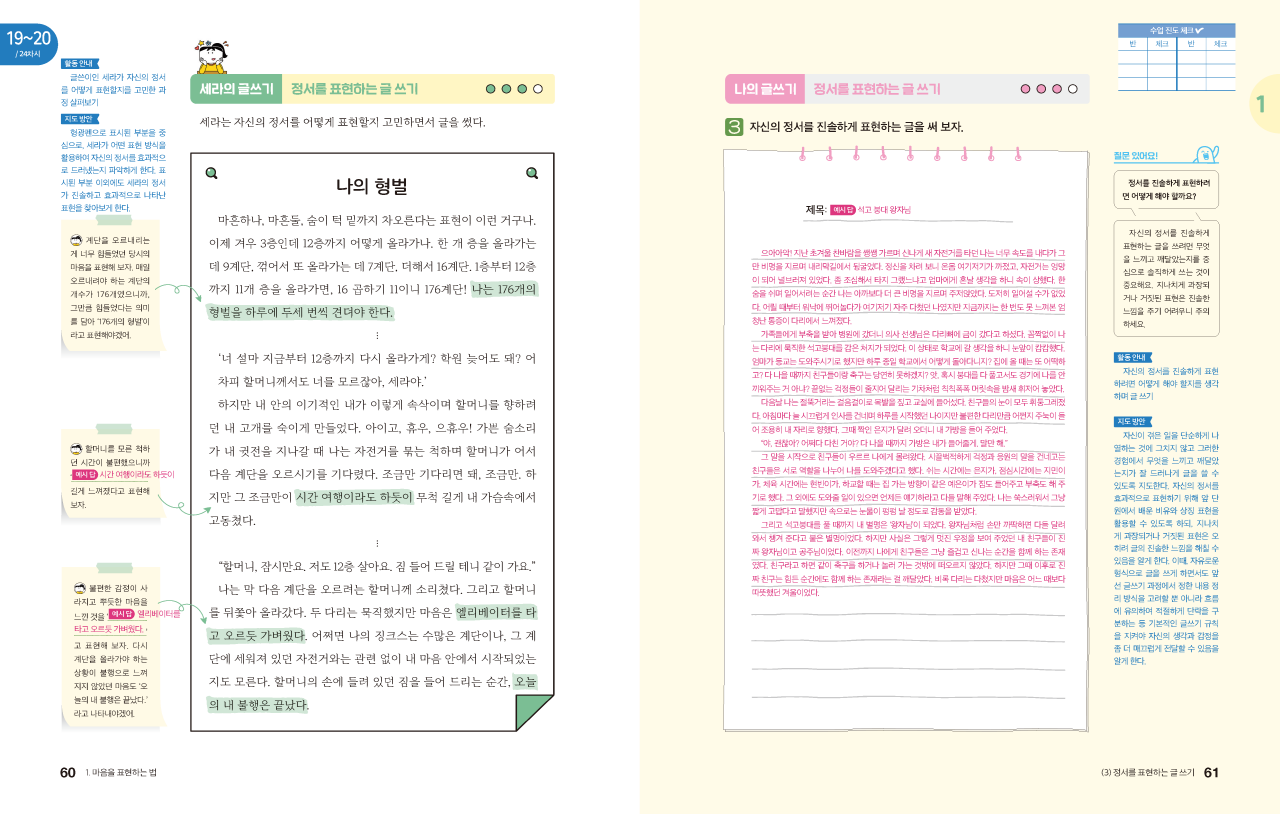 19~20
/ 24차시
활동 안내
글쓴이인 세라가 자신의 정서
를 어떻게 표현할지를 고민한 과
정 살펴보기
지도 방안
형광펜으로 표시된 부분을 중
심으로, 세라가 어떤 표현 방식을
활용하여 자신의 정서를 효과적으
로 드러냈는지 파악하게 한다. 표
시된 부분 이외에도 세라의 정서
가 진솔하고 효과적으로 나타난
표현을 찾아보게 한다.
계단을 오르내리는
게 너무 힘들었던 당시의
마음을 표현해 보자. 매일
오르내려야 하는 계단의
개수가 176개였으니까,
그만큼 힘들었다는 의미
를 담아 '176개의 형벌'이
라고 표현해야겠어.
할머니를 모른 척하
던 시간이 불편했으니까
예시 답 시간 여행이라도 하듯이
길게 느껴졌다고 표현해
보자.
불편한 감정이 사
라지고 뿌듯한 마음을
느낀 것을 예시 답 엘리베이터를
타고 오르듯 가벼웠다.
고 표현해 보자. 다시
계단을 올라가야 하는
상황이 불행으로 느껴
지지 않았던 마음도 '오
늘의 내 불행은 끝났다.'
라고 나타내야겠어.
세라의 글쓰기 정서를 표현하는 글 쓰기
세라는 자신의 정서를 어떻게 표현할지 고민하면서 글을 썼다.
나의 형벌
마흔하나, 마흔둘, 숨이 턱 밑까지 차오른다는 표현이 이런 거구나.
이제 겨우 3층인데 12층까지 어떻게 올라가나. 한 개 층을 올라가는
데 9계단, 꺾어서 또 올라가는 데 7계단, 더해서 16계단. 1층부터 12층
까지 11개 층을 올라가면, 16 곱하기 11이니 176계단! 나는 176개의
형벌을 하루에 두세 번씩 견뎌야 한다.
⋮
'너 설마 지금부터 12층까지 다시 올라가게? 학원 늦어도 돼? 어
차피 할머니께서도 너를 모르잖아, 세라야.'
하지만 내 안의 이기적인 내가 이렇게 속삭이며 할머니를 향하려
던 내 고개를 숙이게 만들었다. 아이고, 휴우, 으휴우! 가쁜 숨소리
가 내 귓전을 지나갈 때 나는 자전거를 묶는 척하며 할머니가 어서
다음 계단을 오르시기를 기다렸다. 조금만 기다리면 돼, 조금만. 하
지만 그 조금만이 시간 여행이라도 하듯이 무척 길게 내 가슴속에서
고동쳤다.
⋮
"할머니, 잠시만요. 저도 12층 살아요. 짐 들어 드릴 테니 같이 가요."
나는 막 다음 계단을 오르려는 할머니께 소리쳤다. 그리고 할머니
를 뒤쫓아 올라갔다. 두 다리는 묵직했지만 마음은 엘리베이터를 타
고 오르듯 가벼웠다. 어쩌면 나의 징크스는 수많은 계단이나, 그 계
단에 세워져 있던 자전거와는 관련 없이 내 마음 안에서 시작되었는
지도 모른다. 할머니의 손에 들려 있던 짐을 들어 드리는 순간, 오늘
의 내 불행은 끝났다.
60 1. 마음을 표현하는 법
수업 진도 체크
반 체크 반 체크
1
나의 글쓰기 정서를 표현하는 글 쓰기
3 자신의 정서를 진솔하게 표현하는 글을 써 보자.
제목: 예시 답 석고 붕대 왕자님
으아아악! 지난 초겨울 찬바람을 쌩쌩 가르며 신나게 새 자전거를 타던 나는 너무 속도를 내다가 그
만 비명을 지르며 내리막길에서 뒹굴었다. 정신을 차려 보니 온몸 여기저기가 까졌고, 자전거는 엉망
이 되어 널브러져 있었다. 좀 조심해서 타지 그랬느냐고 엄마에게 혼날 생각을 하니 속이 상했다. 한
숨을 쉬며 일어서려는 순간 나는 아까보다 더 큰 비명을 지르며 주저앉았다. 도저히 일어설 수가 없었
다. 어릴 때부터 워낙에 뛰어놀다가 여기저기 자주 다쳤던 나였지만 지금까지는 한 번도 못 느껴본 엄
청난 통증이 다리에서 느껴졌다.
가족들에게 부축을 받아 병원에 갔더니 의사 선생님은 다리뼈에 금이 갔다고 하셨다. 꼼짝없이 나
는 다리에 묵직한 석고붕대를 감은 처지가 되었다. 이 상태로 학교에 갈 생각을 하니 눈앞이 캄캄했다.
엄마가 등교는 도와주시기로 했지만 하루 종일 학교에서 어떻게 돌아다니지? 집에 올 때는 또 어떡하
고? 다 나을 때까지 친구들이랑 축구는 당연히 못하겠지? 앗, 혹시 붕대를 다 풀고서도 경기에 나를 안
끼워주는 거 아냐? 끝없는 걱정들이 줄지어 달리는 기차처럼 칙칙폭폭 머릿속을 밤새 휘저어 놓았다.
다음날 나는 절뚝거리는 걸음걸이로 목발을 짚고 교실에 들어섰다. 친구들의 눈이 모두 휘둥그레졌
다. 아침마다 늘 시끄럽게 인사를 건네며 하루를 시작했던 나이지만 불편한 다리만큼 어쩐지 주눅이 들
어 조용히 내 자리로 향했다. 그때 짝인 은지가 달려 오더니 내 가방을 들어 주었다.
"야, 괜찮아? 어쩌다 다친 거야? 다 나을 때까지 가방은 내가 들어줄게. 말만 해."
그 말을 시작으로 친구들이 우르르 나에게 몰려왔다. 시끌벅적하게 걱정과 응원의 말을 건네고는
친구들은 서로 역할을 나누어 나를 도와주겠다고 했다. 쉬는 시간에는 은지가, 점심시간에는 지민이
가, 체육 시간에는 현빈이가, 하교할 때는 집 가는 방향이 같은 예은이가 짐도 들어주고 부축도 해 주
기로 했다. 그 외에도 도와줄 일이 있으면 언제든 얘기하라고 다들 말해 주었다. 나는 쑥스러워서 그냥
짧게 고맙다고 말했지만 속으로는 눈물이 핑핑 날 정도로 감동을 받았다.
그리고 석고붕대를 풀 때까지 내 별명은 '왕자님'이 되었다. 왕자님처럼 손만 까딱하면 다들 달려
와서 챙겨 준다고 붙은 별명이었다. 하지만 사실은 그렇게 멋진 우정을 보여 주었던 내 친구들이 진
짜 왕자님이고 공주님이었다. 이전까지 나에게 친구들은 그냥 즐겁고 신나는 순간을 함께 하는 존재
였다. 친구라고 하면 같이 축구를 하거나 놀러 가는 것밖에 떠오르지 않았다. 하지만 그때 이후로 진
짜 친구는 힘든 순간에도 함께 하는 존재라는 걸 깨달았다. 비록 다리는 다쳤지만 마음은 어느 때보다
따뜻했던 겨울이었다.
질문 있어요!
정서를 진솔하게 표현하려
면 어떻게 해야 할까요?
자신의 정서를 진솔하게
표현하는 글을 쓰려면 무엇
을 느끼고 깨달았는지를 중
심으로 솔직하게 쓰는 것이
중요해요. 지나치게 과장되
거나 거짓된 표현은 진솔한
느낌을 주기 어려우니 주의
하세요.
활동 안내
자신의 정서를 진솔하게 표현
하려면 어떻게 해야 할지를 생각
하며 글 쓰기
지도 방안
자신이 겪은 일을 단순하게 나
열하는 것에 그치지 않고 그러한
경험에서 무엇을 느끼고 깨달았
는지가 잘 드러나게 글을 쓸 수
있도록 지도한다. 자신의 정서를
효과적으로 표현하기 위해 앞 단
원에서 배운 비유와 상징 표현을
활용할 수 있도록 하되, 지나치
게 과장되거나 거짓된 표현은 오
히려 글의 진솔한 느낌을 해칠 수
있음을 알게 한다. 이때, 자유로운
형식으로 글을 쓰게 하면서도 앞
선 글쓰기 과정에서 정한 내용 정
리 방식을 고려할 뿐 아니라 흐름
에 유의하여 적절하게 단락을 구
분하는 등 기본적인 글쓰기 규칙
을 지켜야 자신의 생각과 감정을
좀 더 매끄럽게 전달할 수 있음을
알게 한다.
(3) 정서를 표현하는 글 쓰기 61